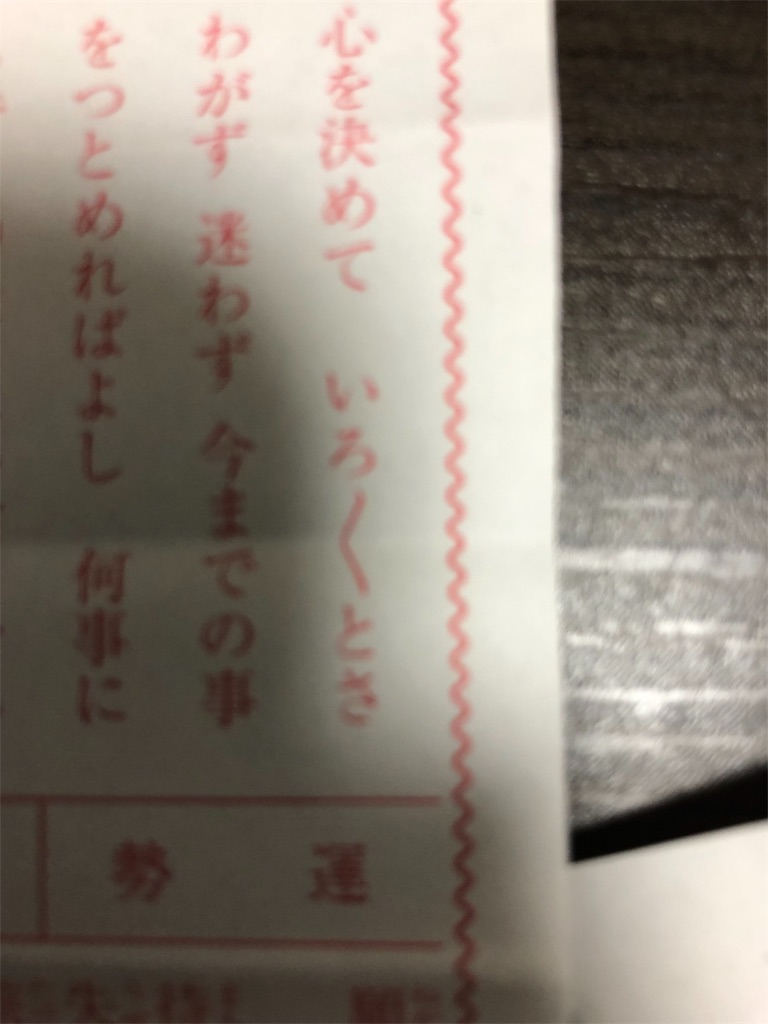 心を決めて いろ〱とさ
わがず 迷わず 今までの事
をつとめればよし 何事に
運勢
願
待
失